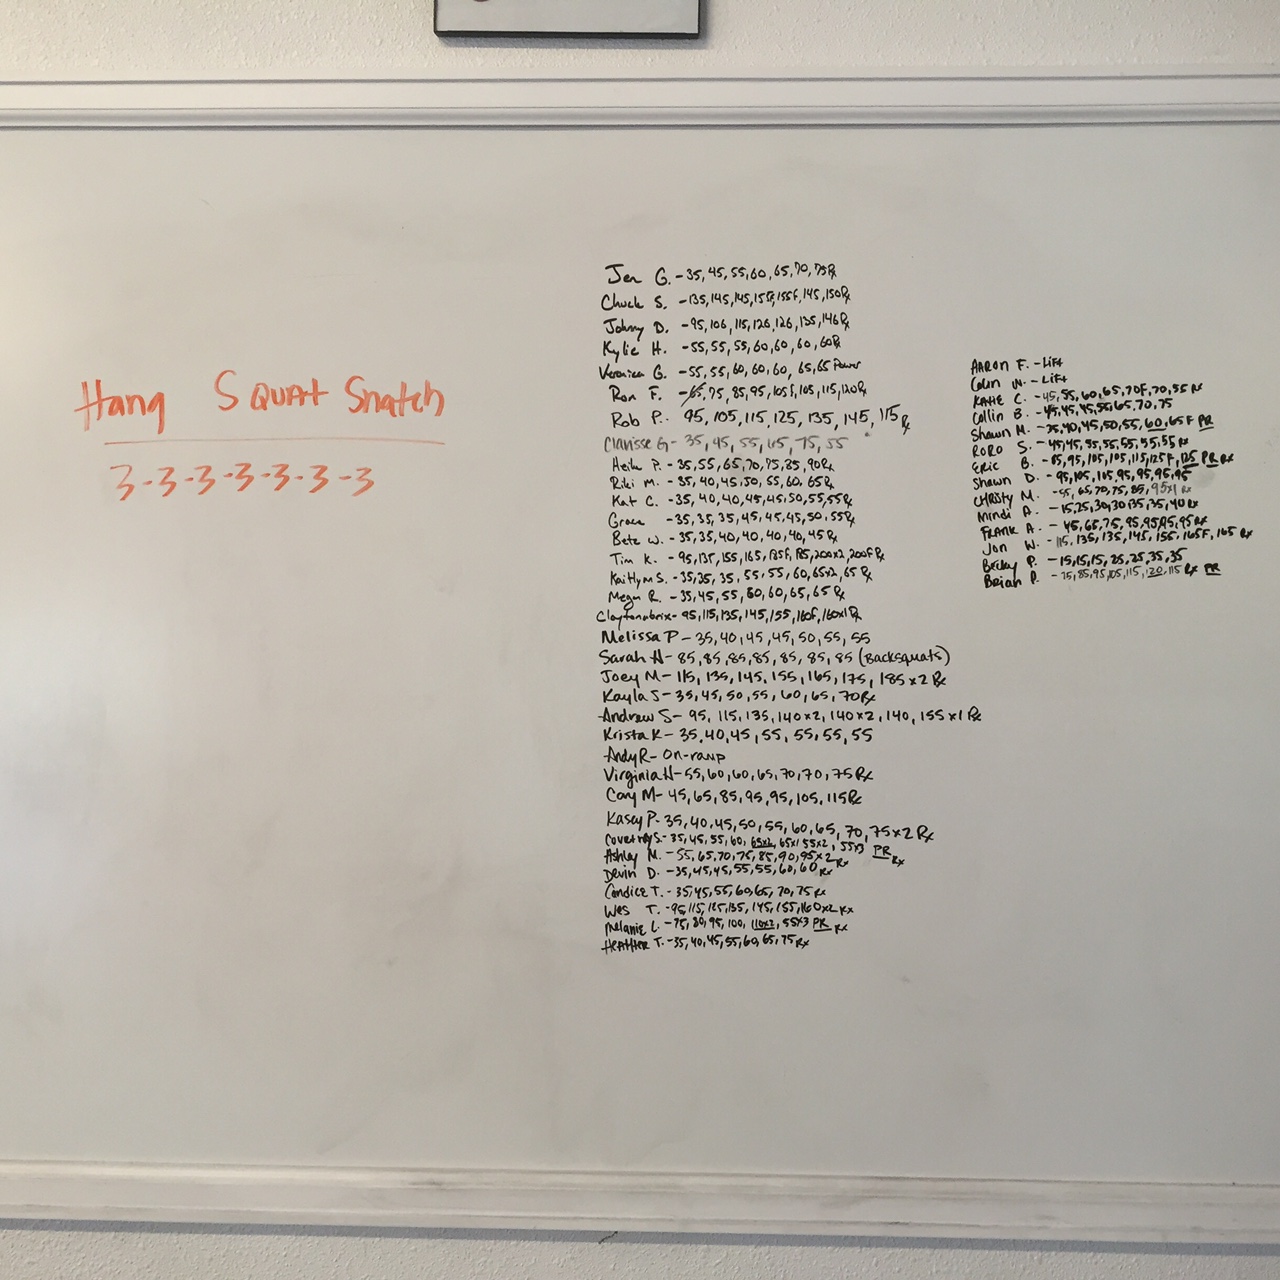 Hang Squat Snatch
3-3-3-3-3-3-3
Jen G. - 35, 45, 55, 60, 65, 70, 75 Rx
Chuck S. - 135, 145, 145, 155F, 155F, 145, 150 Rx
Johnny D. - 95, 106, 115, 126, 126, 135, 146 Rx
Kylie H. - 55, 55, 55, 60, 60, 60, 60 Rx
Veronica G. - 55, 55, 60, 60, 60, 65, 65 Power
Ron F. - 65, 75, 85, 95, 105F, 105, 115, 120 Rx
Rob P. - 95, 105, 115, 125, 135, 145, 115 Rx
Clarisse G - 35, 45, 55, 65, 75, 55
Heik P. - 35, 55, 65, 70, 75, 85, 90 Rx
Riki M. - 35, 40, 45, 50, 55, 60, 65 Rx
Kat C. - 35, 40, 40, 45, 45, 50, 55, 55 Rx
Grace - 35, 35, 35, 45, 45, 45, 50, 55 Rx
Beta W. - 35, 35, 40, 40, 40, 40, 45 Rx
Tim K. - 95, 135, 155, 165, 185F, 185, 200x2, 200F Rx
Kaitlyn S. - 35, 35, 35, 55, 55, 60, 65x2, 65 Rx
Megan R. - 35, 45, 55, 60, 60, 65, 65 Rx
Claytonabrix - 95, 115, 135, 145, 155, 160F, 160x1 Rx
Melissa P - 35, 40, 45, 45, 50, 55, 55
Sarah H - 85, 85, 85, 85, 85, 85, 85 (Backsquats)
Joey M - 115, 135, 145, 155, 165, 175, 185x2 Rx
Kayla S - 35, 45, 50, 55, 60, 65, 70 Rx
Andrew S - 95, 115, 135, 140x2, 140x2, 140, 155x1 Rx
Krista K - 35, 40, 45, 55, 55, 55, 55
Andy R - On-ramp
Virginia H - 55, 60, 60, 65, 70, 70, 75 Rx
Cory M - 45, 65, 85, 95, 95, 105, 115 Rx
Kasey P - 35, 40, 45, 50, 55, 60, 65, 70, 75x2 Rx
Courtney S. - 35, 45, 55, 60, 65x2, 65x1, 55x2, 55x3 PR Rx
Ashley M. - 55, 65, 70, 75, 85, 90, 95x2 Rx
Devin D. - 35, 45, 45, 55, 55, 60, 60 Rx
Candice T. - 35, 45, 55, 60, 65, 70, 75 Rx
Wes T. - 95, 115, 125, 135, 145, 155, 160x2 Rx
Melanie L. - 75, 80, 95, 100, 110x2, 55x3 PR Rx
Heather T. - 35, 40, 45, 55, 60, 65, 75 Rx
Aaron F. - Lift
Colin W. - Lift
Katie C. - 45, 55, 60, 65, 70F, 70, 55 Rx
Collin B. - 45, 45, 45, 55, 65, 70, 75
Shawn M. - 35, 40, 45, 50, 55, 60, 65F PR
RoRo S. - 45, 45, 55, 55, 55, 55, 55 Rx
Eric B. - 85, 95, 105, 105, 115, 125F, 125 PR Rx
Shawn D. - 95, 105, 105, 95, 95, 95, 95
Christy M. - 55, 65, 70, 75, 85, 95x1 Rx
Mindi A. - 15, 25, 30, 30, 35, 35, 40 Rx
Frank A. - 45, 65, 75, 95, 95, 95, 95 Rx
Jon W. - 115, 135, 135, 145, 155, 165F, 165 Rx
Becky P. - 15, 15, 15, 25, 25, 35, 35
Brian P. - 75, 85, 95, 105, 115, 120, 115 Rx PR